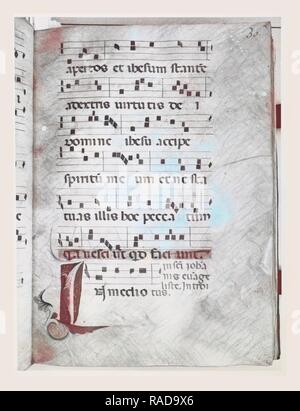 apertos et ihesum stante
adextris virtutis de i
domine ihesu accipe
spiritu me um et ne sta
tuas illis hoc pecca tum
qa nesci ut qd faci unt
In sci ioha
nis evāge
liste. Introi
In medio tus.
alamy
RAD9X6
www.alamy.com